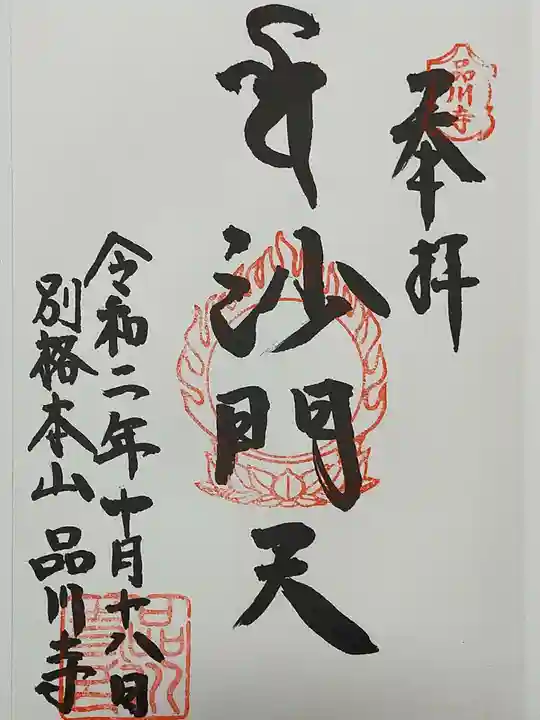 奉拝
品川寺
沙門天
令和二年十月十八日
別格本山 品川寺